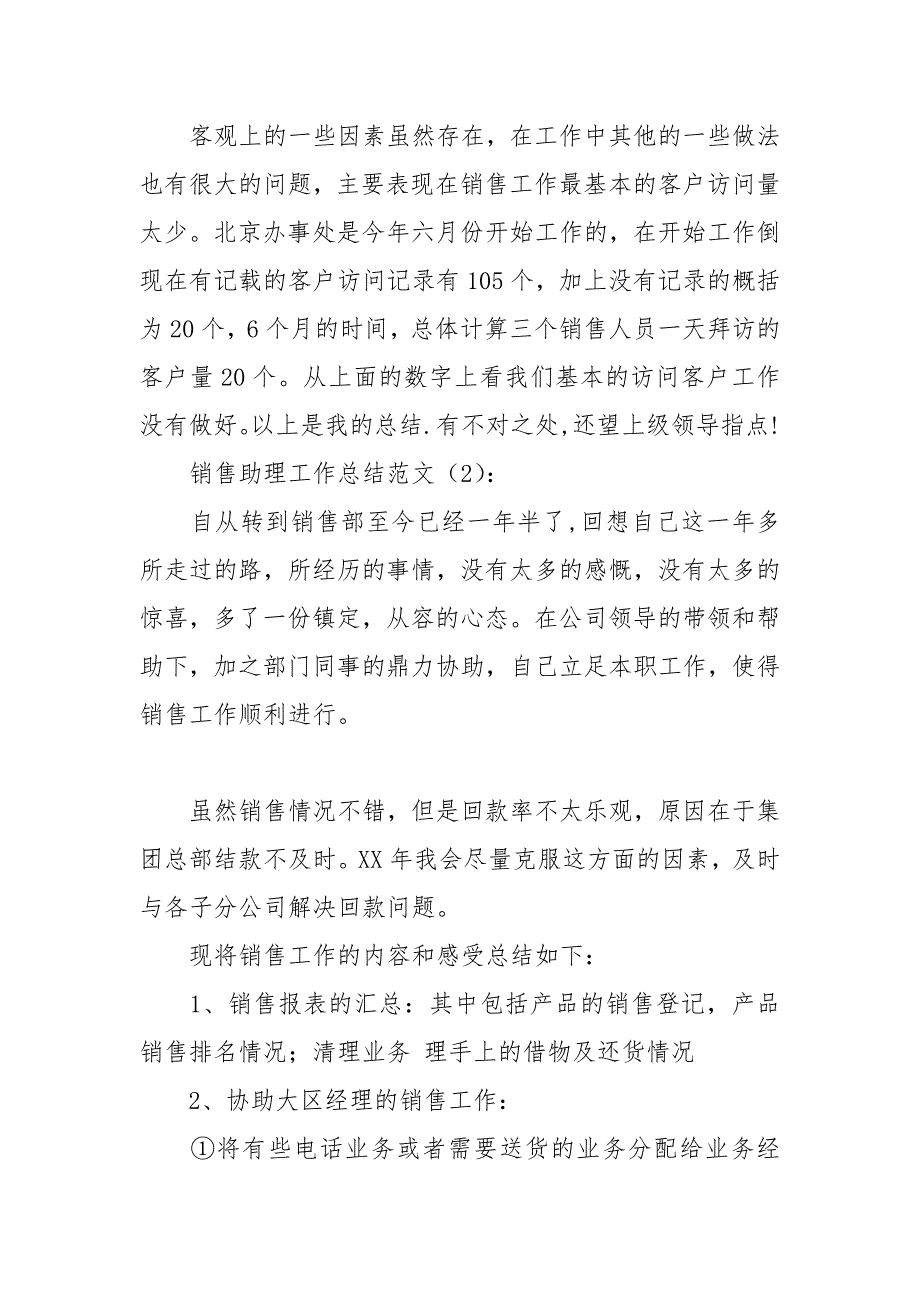 客观上的一些因素虽然存在，在工作中其他的一些做法
也有很大的问题，主要表现在销售工作最基本的客户访问量
太少。北京办事处是今年六月份开始工作的，在开始工作倒
现在有记载的客户访问记录有 105 个，加上没有记录的概括
为 20 个，6 个月的时间，总体计算三个销售人员一天拜访的
客户量 20 个。从上面的数字上看我们基本的访问客户工作
没有做好。以上是我的总结.有不对之处,还望上级领导指点!
销售助理工作总结范文（2）：
自从转到销售部至今已经一年半了,回想自己这一年多
所走过的路，所经历的事情，没有太多的感慨，没有太多的
惊喜，多了一份镇定，从容的心态。在公司领导的带领和帮
助下，加之部门同事的鼎力协助，自己立足本职工作，使得
销售工作顺利进行。
虽然销售情况不错，但是回款率不太乐观，原因在于集
团总部结款不及时。XX 年我会尽量克服这方面的因素，及时
与各子分公司解决回款问题。
现将销售工作的内容和感受总结如下：
1、销售报表的汇总：其中包括产品的销售登记，产品
销售排名情况；清理业务 理手上的借物及还货情况
2、协助大区经理的销售工作：
①将有些电话业务或者需要送货的业务分配给业务经